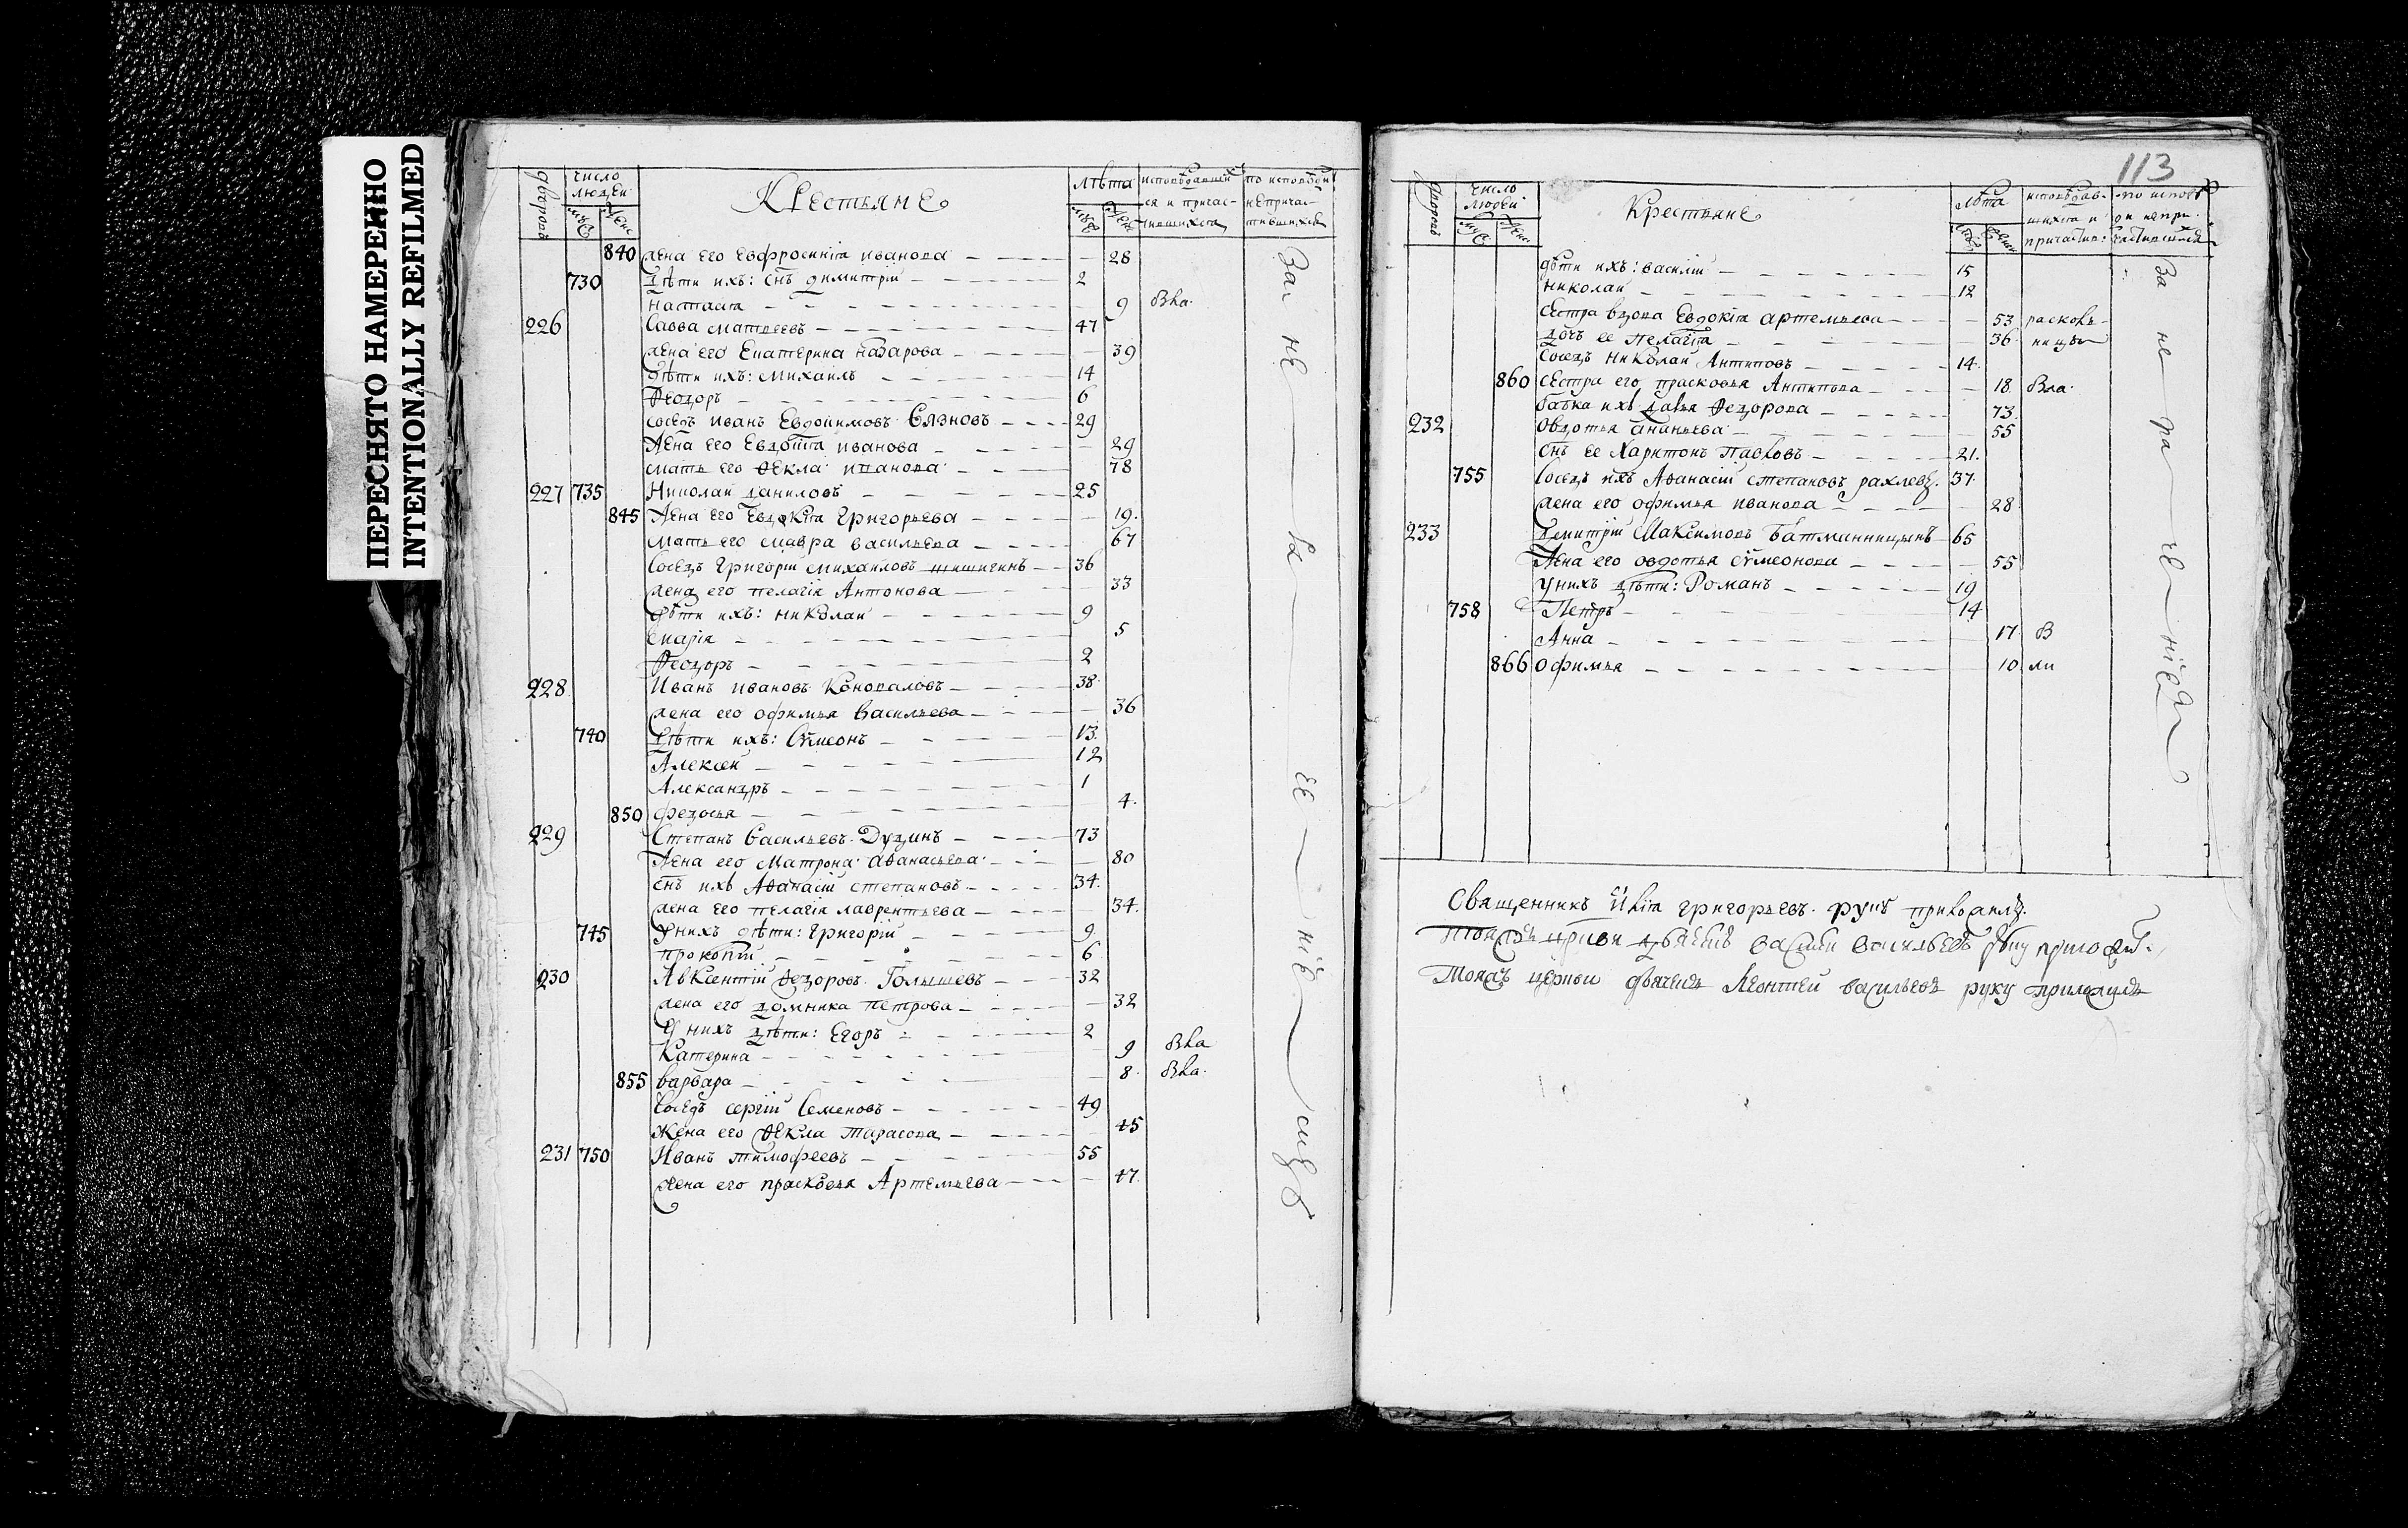 ПЕРЕСНЯТО НАМЕРЕННО
INTENTIONALLY REFILMED
дворовъ число людей Крестьяне лѣта исповѣдавшихся и причастившихся по исповѣди непричастившихся
муж жен муж жен
840 жена его Евфросинїа иванова 28
730 Дѣти ихъ: снъ димитрїй 2
настасїа 9 Вла.
226 Савва матвеевъ 47
жена его Екатерина назарова 39
дѣти ихъ: михаилъ 14
Ѳеодоръ 6
сосѣдъ иванъ Евдокимовъ 29
жена его Евдокїа иванова 29
мать его Ѳекла иванова 78
227 735 Николай даниловъ 25
845 жена его Евдокїа Григорьева 19.
мать его мавра васильева 67
Сосѣдъ Григорїй михаиловъ шишигинъ 36
жена его пелагїя Антонова 33
дѣти ихъ: николай 9
марїя 5
Ѳеодоръ 2
228 Иванъ ивановъ Коноваловъ 38
жена его офимья Васильева 36
740 Дѣти ихъ: Сѵмеонъ 13.
Алексей 12
Александръ 1
850 федосья 4.
229 Степанъ Васильевъ Дудинъ 73
жена его Матрона Аѳанасьева 80
снъ ихъ Аѳанасїй степановъ 34.
жена его пелагїя лаврентьева 34.
745 У нихъ дѣти: Григорїй 9.
прокопїй 6
230 Авксентїй Ѳедоровъ Голышевъ 32
жена его домника петрова 32
У нихъ дѣти: Егоръ 2
Катерина 9 Вла
855 варвара 8. Вла.
Сосѣдъ сергїй Семеновъ 49
Жена его Ѳекла тарасова 45
231 750 Иванъ тимофеевъ 55
жена его прасковья Артемьева 47.
За не
113
дворовъ число людей Крестьяне лѣта исповѣдавшихся и причастив: по исповѣди непричастившихся
муж жен муж жен
дѣти ихъ: василїй 15
николай 12
Сестра вдова Евдокїа артемьева 53 расколь
дочь ее пелагїа 36 ницы
Сосѣдъ николай Антиповъ 14.
860 сестра его прасковья Антипова 18. Вла.
бабка ихъ дарья Ѳедорова 73.
232 Овдотья ананьева 55
снъ ее Харитонъ Павловъ 21.
755 Сосѣдъ ихъ Аѳанасїй степановъ 37.
жена его офимья иванова 28
233 Димитрїй Максимовъ 65
Жена его овдотья сѵмеонова 55
У нихъ дѣти: Романъ 19
758 Петръ 14
Анна 17. В
866 Офимья 10. ли
За не ра че нїемъ
Священникъ григорьевъ руку приложилъ
васїлїй васильевъ руку приложилъ
Тояжъ церкви дьячекъ Леонтей васильевъ руку приложилъ